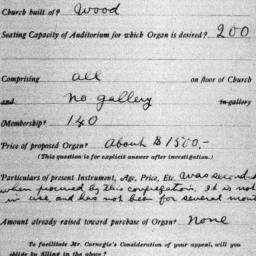 Church built of? Wood
Seating Capacity of Auditorium for which Organ is desired? 200
Comprising all on floor of Church
and no gallery in gallery
Membership? 140
Price of proposed Organ? About $1500.-
(This question is for explicit answer after investigation.)
Particulars of present Instrument, Age, Price, Etc. was second
when procured by this congregation, It is not
in use and has not been for several mont
Amount already raised toward purchase of Organ? None
To facilitate Mr. Carnegie's Consideration of your appeal, will you
oblige by filling in the above?